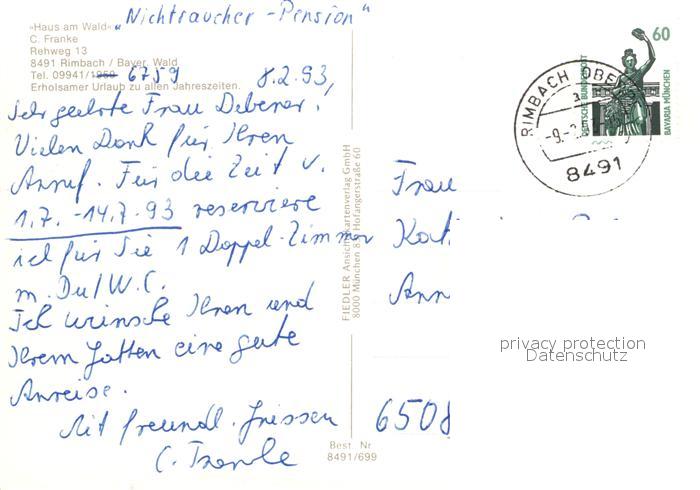 „Nichtraucher-Pension“
»Haus am Wald«
C. Franke
Rehweg 13
8491 Rimbach / Bayer. Wald
Tel. 09941/1959 6759
Erholsamer Urlaub zu allen Jahreszeiten.
8.2.93,
Sehr geehrte Frau Debener,
Vielen Dank für Ihren
Anruf. Für die Zeit v.
1.7. - 14.7.93 reserviere
ich für Sie 1 Doppel-Zimmer
m. Du/W.C.
Ich wünsche Ihnen und
Ihrem Gatten eine gute
Anreise.
Mit freundl. Grüssen
C. Franke
FIEDLER Ansichtskartenverlag GmbH
8000 München 83 Hofangerstraße 60
Best. Nr
8491/699
60
DEUTSCHE BUNDESPOST
BAVARIA MÜNCHEN
RIMBACH
8491
Frau
Kat
Ann
6508
privacy protection
Datenschutz